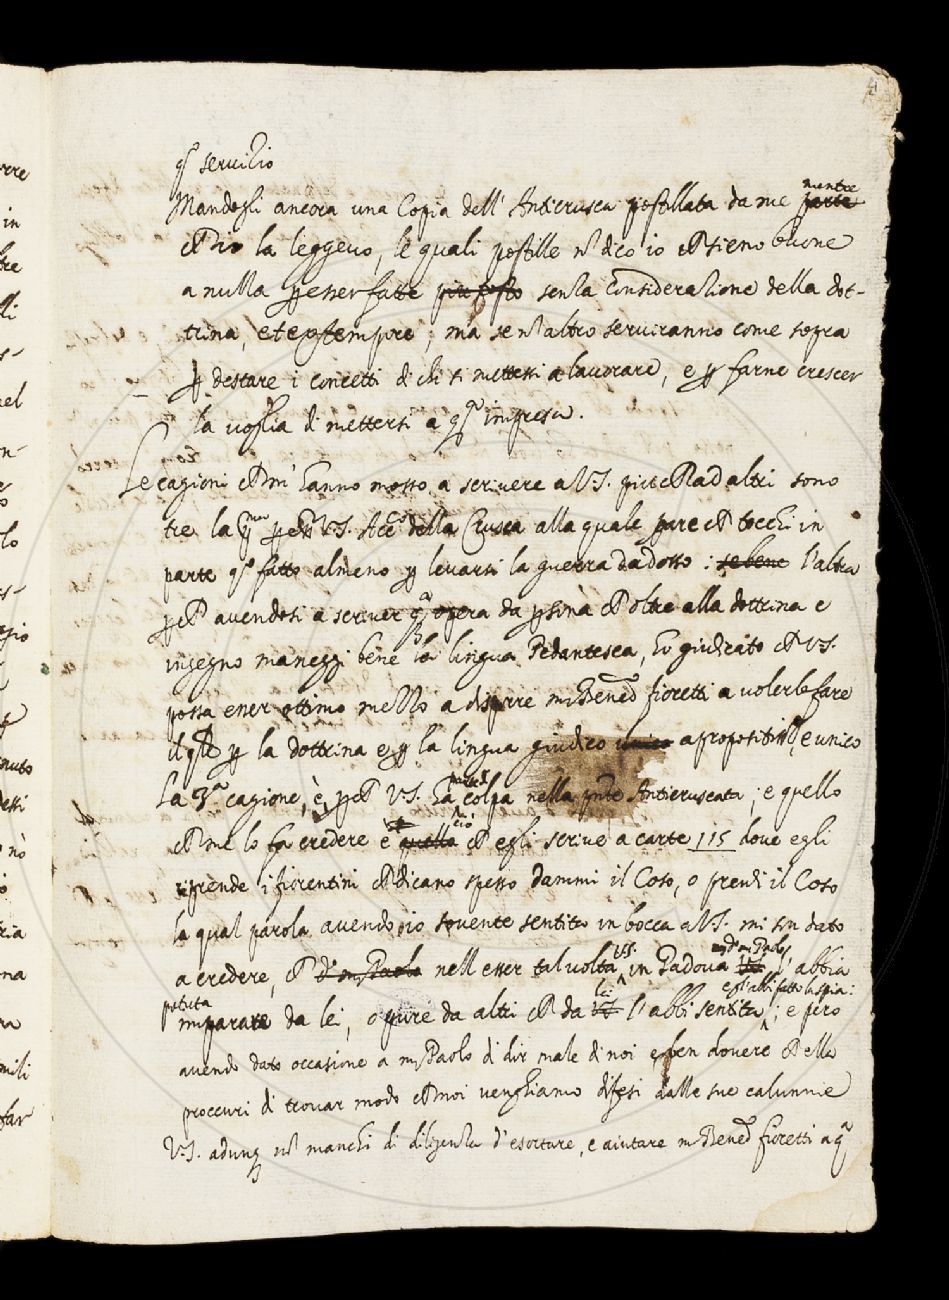 q.º servizio
Mandogli ancora una Copia dell' Anticrusca postillata da me mentre
ch'io la leggevo, le quali postille nō dico io che sieno buone
a nulla p esser fatte piu tosto senza considerazione della dot-
trina, et extempore; ma senz'altro serviranno come sopra
p destare i concetti di chi si mettessi a lavorare, e p farne crescer
la voglia di mettersi a q.ª impresa.
Le cagioni che m' hanno mosso a scrivere a V.S. piu che ad altri sono
tre la p.ª p esser V.S. Acc.º della Crusca alla quale pare che tocchi in
parte q.º fatto almeno p levarsi la guerra da dosso: se bene l'altra
p che avendosi a scriver q.ª opera da p̄sona che oltre alla dottrina e
ingegno maneggi bene la lingua Pedantesca, ho giudicato che V.S.
possa esser ottimo mezzo a disporre m. Bened.º fioretti a volerle fare
il q̄le p la dottrina e p la lingua giudico unico a propositiss.º, e unico
La 3.ª cagione, è, p che V.S. ha parte di colpa nella p̄nte Anticruscata; e quello
che me lo fa credere è quella ciò che egli scrive a carte 115 dove egli
riprende i fiorentini che dicano spesso dammi il Coso, o prendi il Coso
la qual parola avendo io sovente sentita in bocca a V.S. mi son dato
a credere, che d. m. Paolo nell esser talvolta V.S. in Padova m. Paolo l'abbia
potuta imparare da lei, o pure da altri che da lei l'abbi sentita, e gl'abbi fatto la spia: ; e però
avendo dato occasione a m. Paolo di dir male di noi è ben dovere che ella
proccuri di trovar modo che noi venghiamo difesi dalle sue calunnie
V.S. adunq nō manchi di diligenza d'esortare, e aiutare m. Bened.º fioretti a q.ª